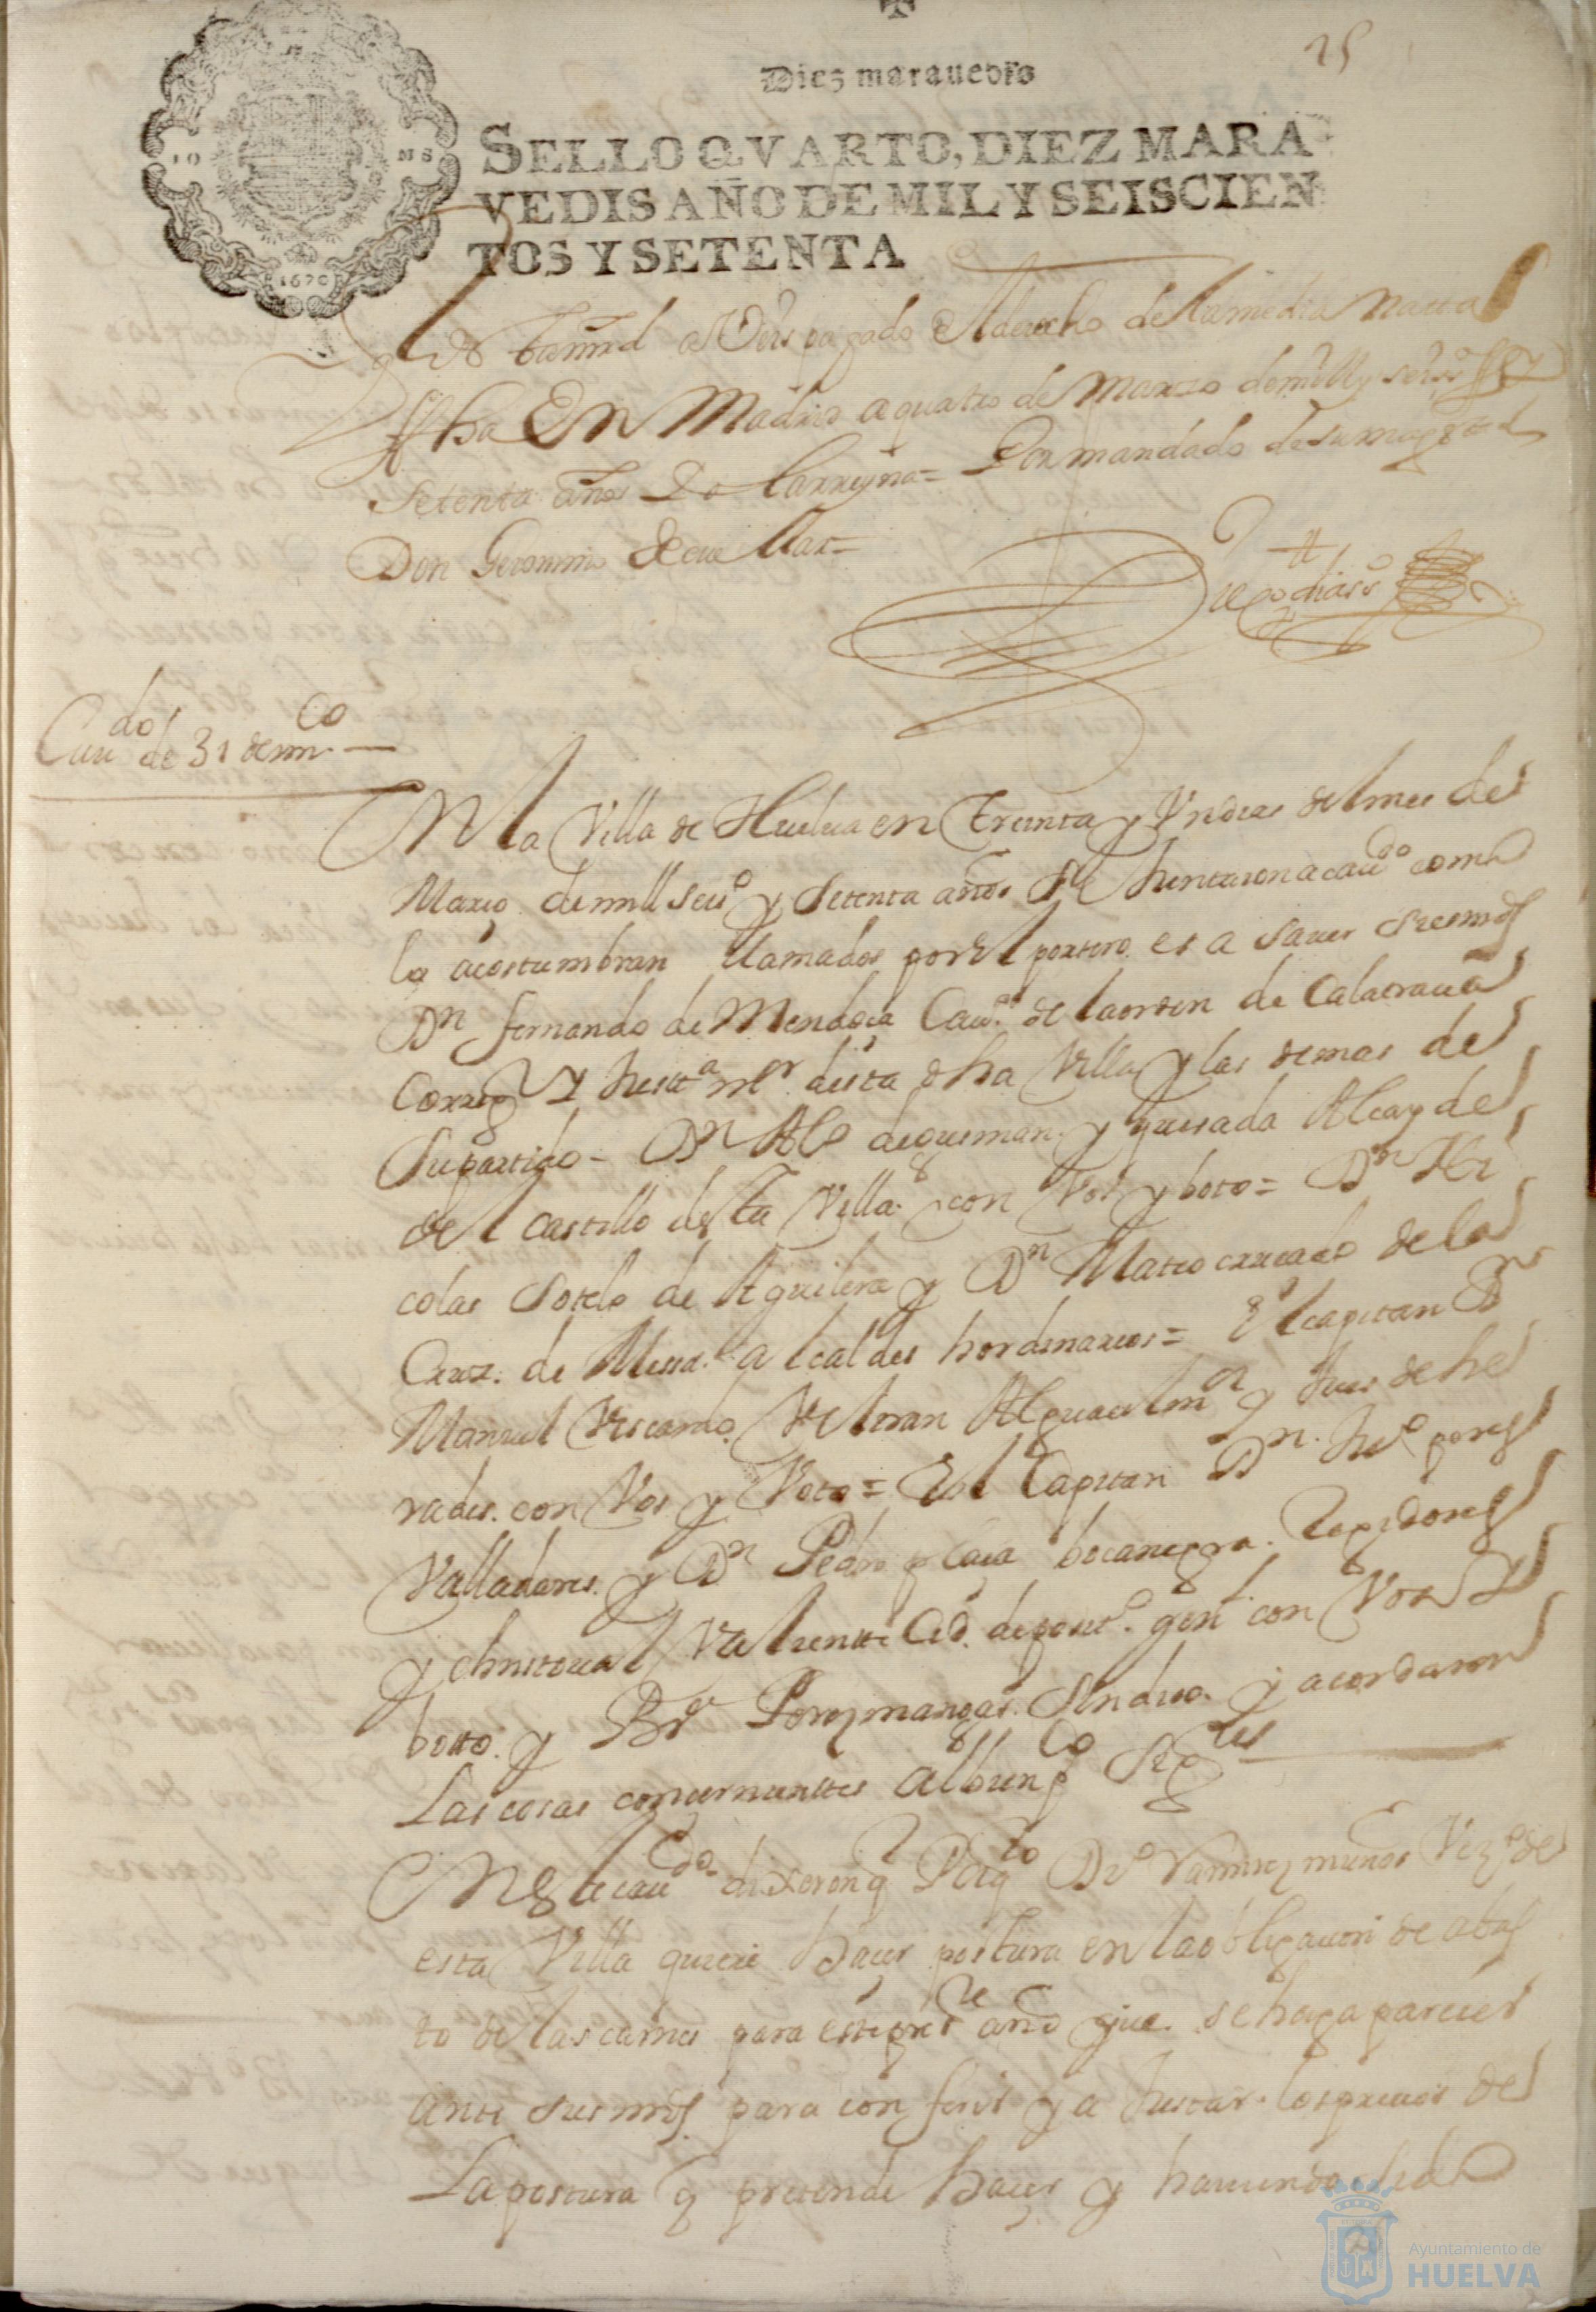 25
Diez marauedis
SELLO QVARTO, DIEZ MARA
VEDIS AÑO DE MIL Y SEISCIEN
TOS Y SETENTA
1670
pagado el derecho de la media Natta
ffha En Madrid a quatro de Marzo de mill y seisos
Setenta años Yo la rreyna = Por mandado de su magd
Don Geronimo de cuellar =
Caudo de 31 de mco
En la Villa de Huelua en treinta y Un dias del mes de
Março de mill seiso y setenta años Se huntaron a caudo como
lo acostumbran llamados por el portero es a sauer sus mds
Dn fernando de Mendoça Cauo de la orden de Calatraua
Correg Y Justa mr desta dha Villa y las demas de
Su partido - Dn Alo de gusman y quesada Alcayde
del castillo desta Villa con Vos y boto = Dn Ni
colas Sotelo de Aguilera y Dn Mateo de la
Cruz de Messa alcaldes hordinarios = El capitan Dn
Manuel Viscardo Veltran Alguacil mor y Jues de he
rades con Vos y Voto = El Capitan Dn Juo peres
Valladares y Dn Pedro plaça bocanegra Regidores
y christoual Valiente deposito genl con Voz Y
botto y Bre Peres mangas Sindico y acordaron
Las cosas concernientes al buen Co sigtes
En este caudo dixeron q Ramires muños Vezo de
esta Villa quiere haçer postura en la obligacion de abas
to de las carnes para este preste año que se haga pareçer
ante sus mds para conferir y a Justar los preçios de
La postura q pretende haçer y hauiendo
Ayuntamiento de
HUELVA